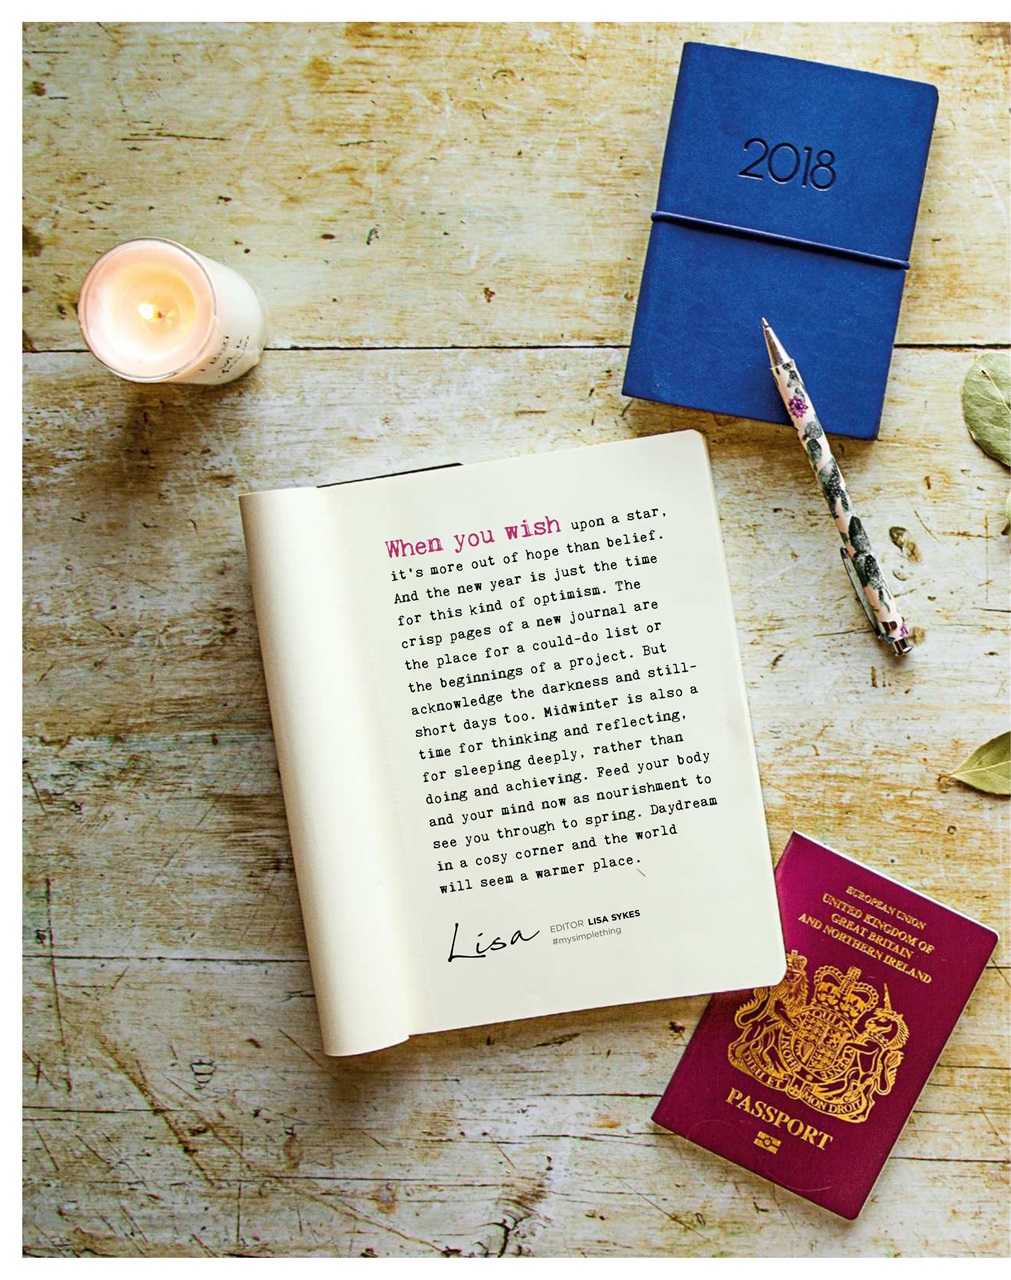 2018
When you wish upon a star,
it's more out of hope than belief.
And the new year is just the time
for this kind of optimism. The
crisp pages of a new journal are
the place for a could-do list or
the beginnings of a project. But
acknowledge the darkness and still-
short days too. Midwinter is also a
time for thinking and reflecting,
for sleeping deeply, rather than
doing and achieving. Feed your body
and your mind now as nourishment to
see you through to spring. Daydream
in a cosy corner and the world
will seem a warmer place.
Lisa
EDITOR LISA SYKES
#mysimplething
EUROPEAN UNION
UNITED KINGDOM OF
GREAT BRITAIN
AND NORTHERN IRELAND
DIEU ET MON DROIT
PASSPORT